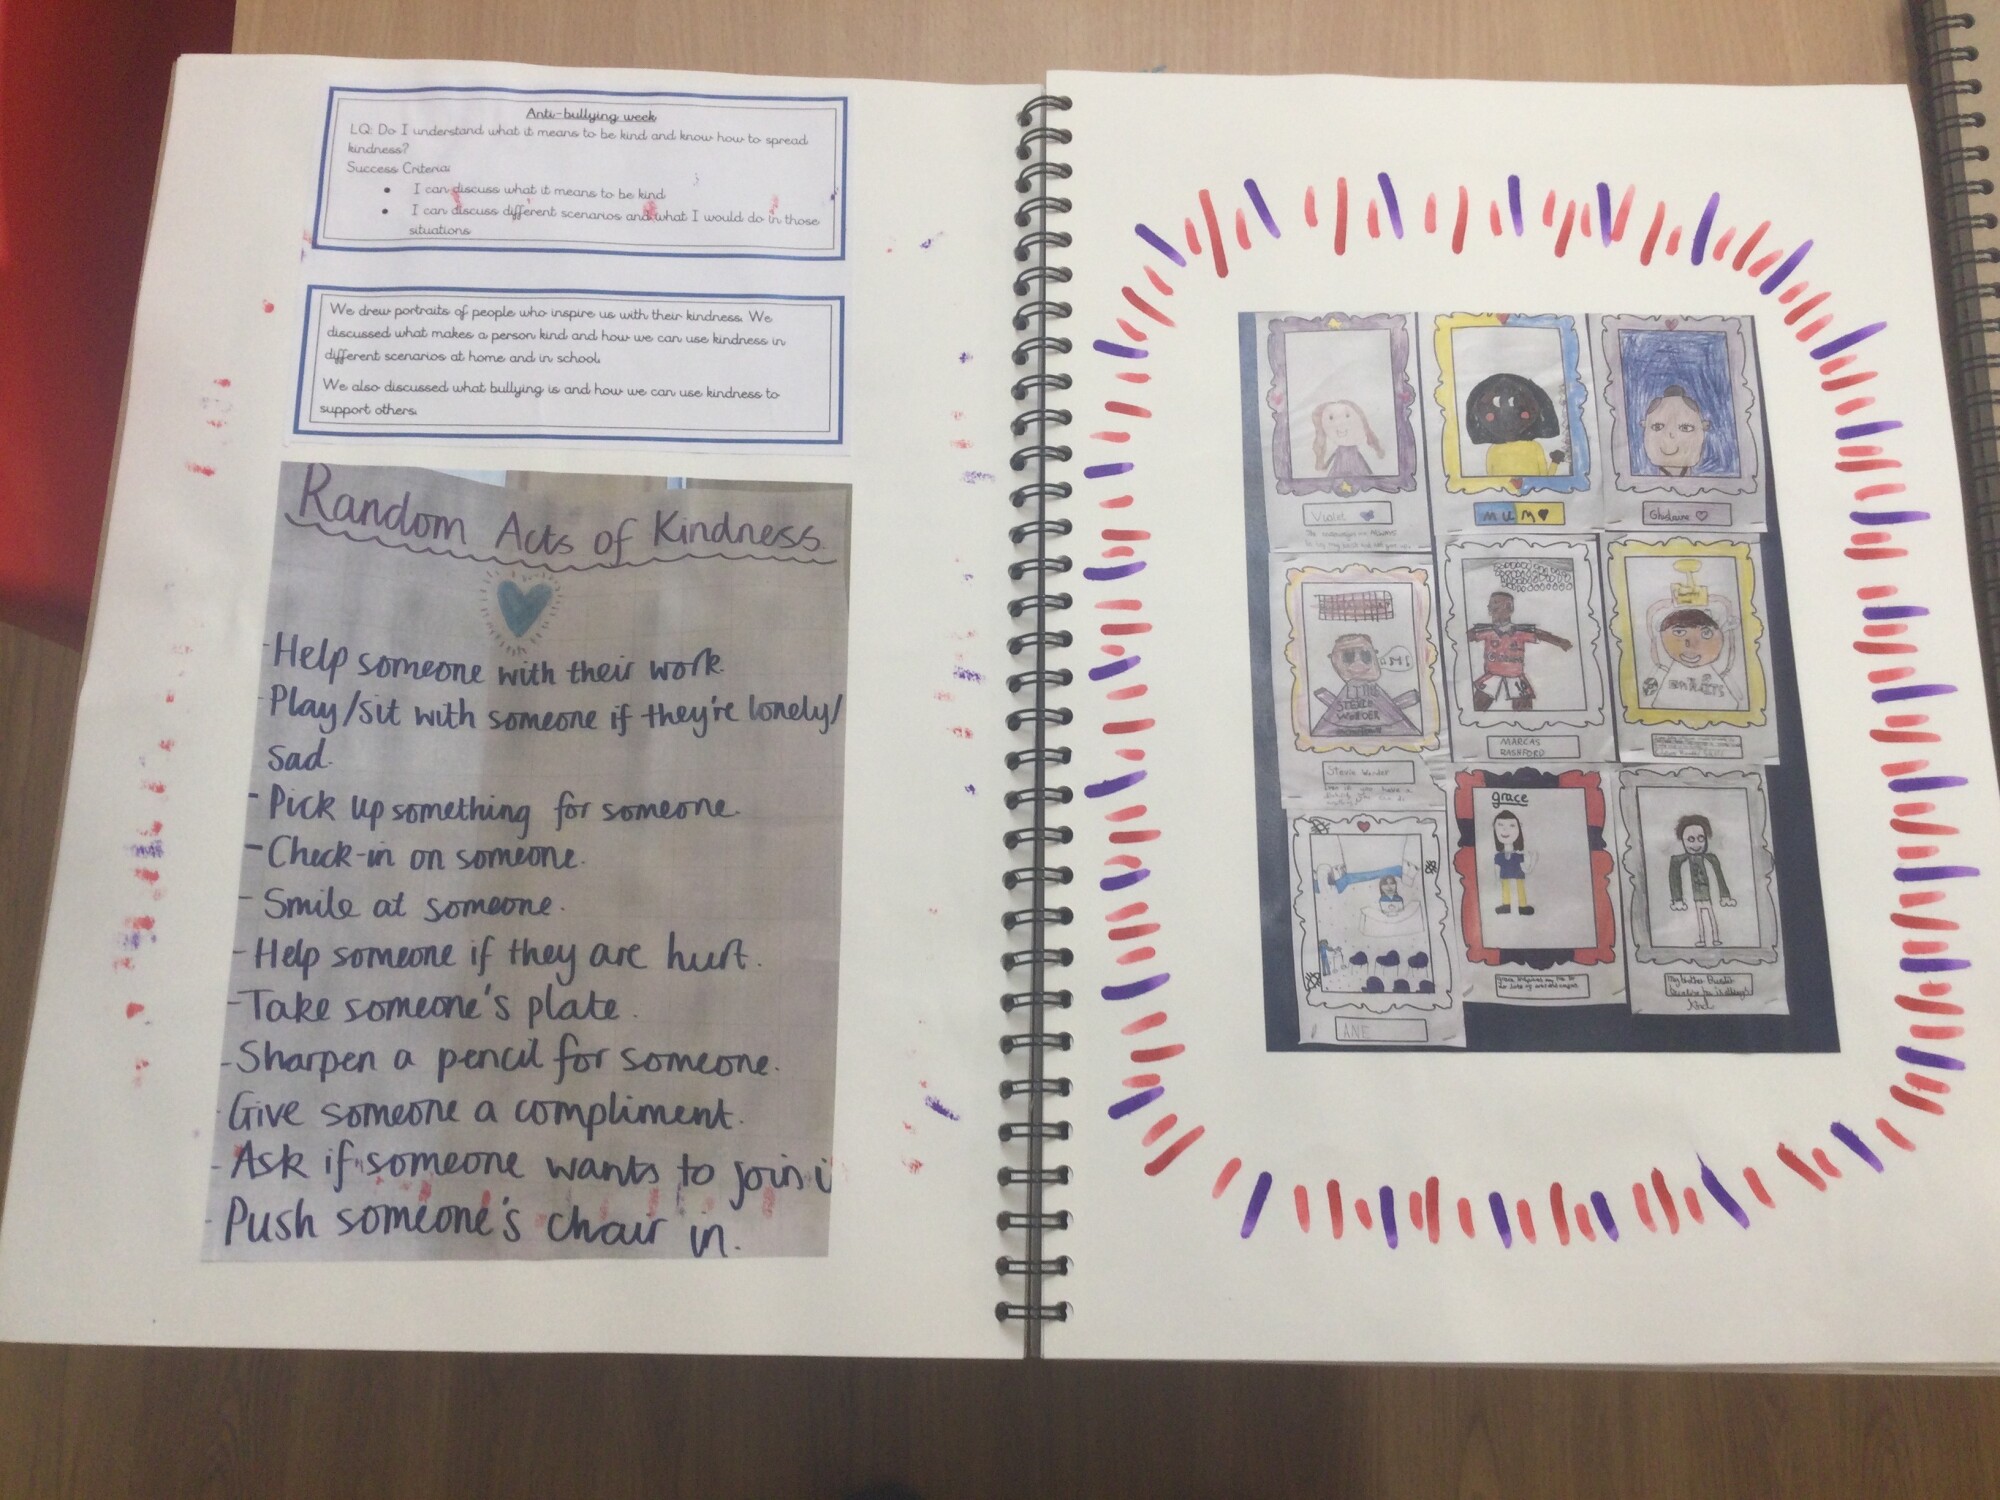 Anti-bullying week
LQ: Do I understand what it means to be kind and know how to spread
kindness?
Success Criteria:
• I can discuss what it means to be kind
• I can discuss different scenarios and what I would do in those
situations
We drew portraits of people who inspire us with their kindness. We
discussed what makes a person kind and how we can use kindness in
different scenarios at home and in school.
We also discussed what bullying is and how we can use kindness to
support others.
Random Acts of Kindness
- Help someone with their work.
- Play/sit with someone if they're lonely/
sad.
- Pick up something for someone.
- Check-in on someone.
- Smile at someone.
- Help someone if they are hurt.
- Take someone's plate.
- Sharpen a pencil for someone.
- Give someone a compliment.
- Ask if someone wants to join i
- Push someone's chair in.
Violet
MUM
STEVIE
WONDER
Stevie Wonder
MARCAS
RASHFORD
grace
ANE
My brother
kind